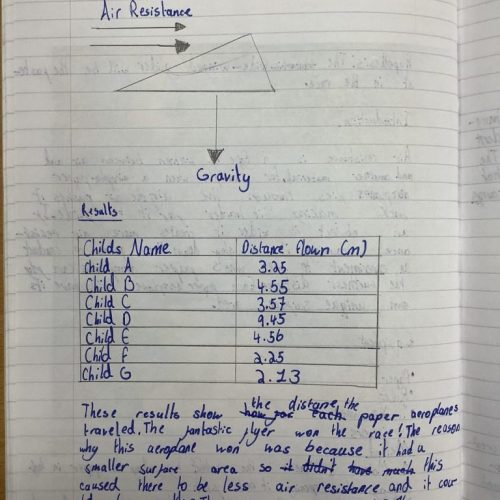 Air Resistance
Gravity
Results
Childs Name Distance flown (m)
Child A 3.25
Child B 4.55
Child C 3.57
Child D 9.45
Child E 4.56
Child F 2.25
Child G 2.13
the distane, the
These results show how far each paper aeroplanes
traveled. The fantastic flyer won the race! The reason
why this aeroplane won was because it had a
smaller surface area so it didn't have much this
caused there to be less air resistance and it cou